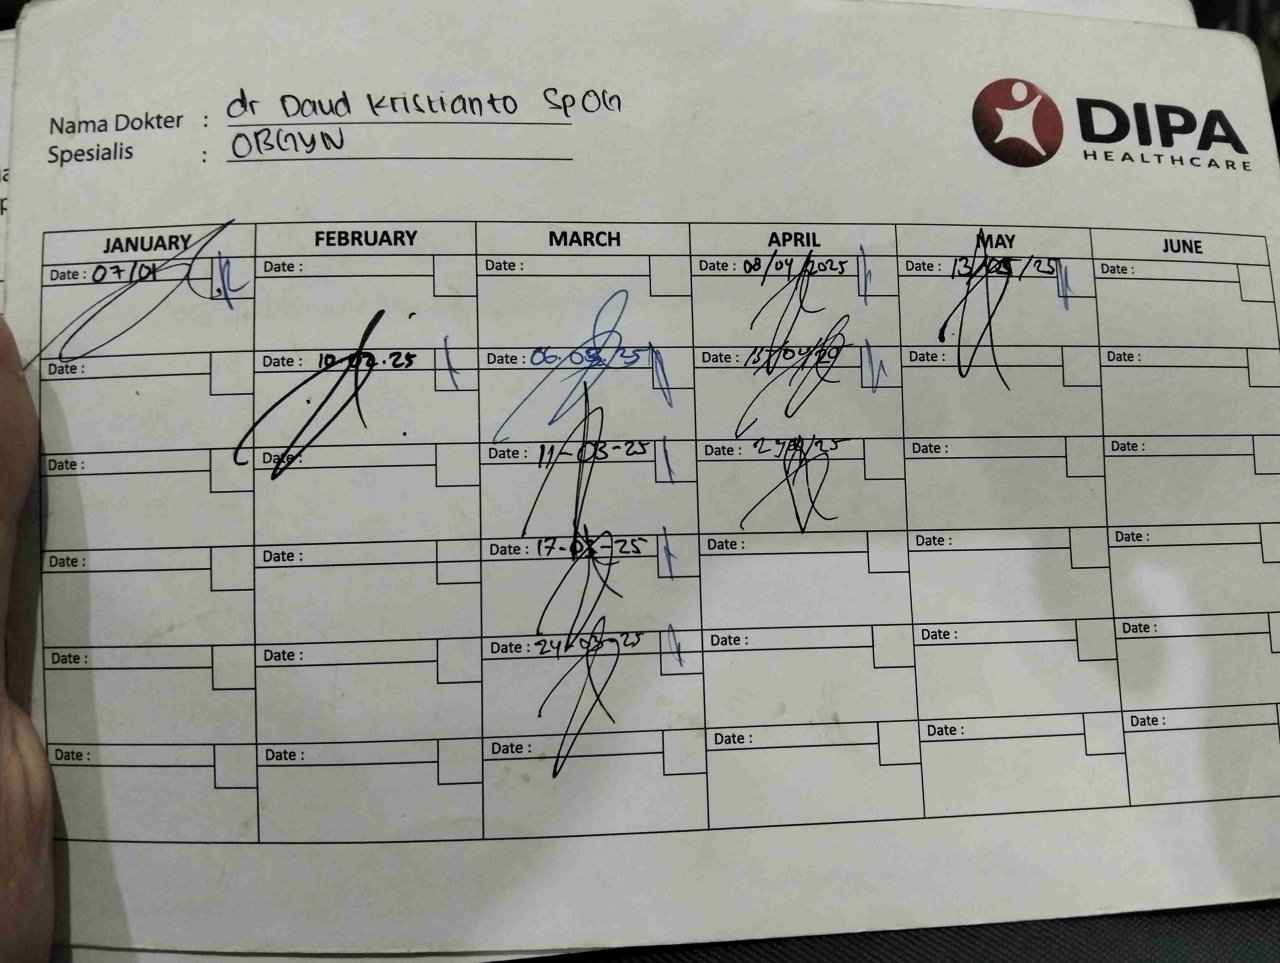 Nama Dokter : dr Daud Kristianto SpOG
Spesialis : OBGYN
DIPA
HEALTHCARE
JANUARY FEBRUARY MARCH APRIL MAY JUNE
Date : 07/01 Date : Date : Date : 08/04/2025 Date : 13/05/25 Date :
Date : Date : 10.02.25 Date : 06.03/25 Date : Date : Date :
Date : Date : Date : 11-03-25 Date : Date : Date :
Date : Date : Date : 17-03-25 Date : Date : Date :
Date : Date : Date : 24-03-25 Date : Date : Date :
Date : Date : Date : Date : Date : Date :